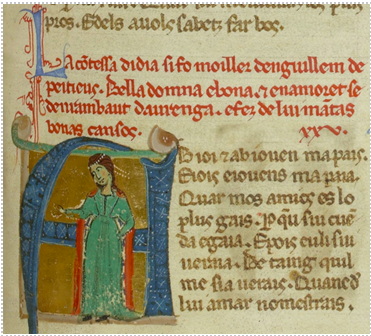 pros. Edels auols sabetz far bos.
La cōtessa didia si fo moiller denguillem de
peitieus. Bella domna ebona. ⁊ enamoret se
derambaut daurenga. efez de lui māntas
bonas cansos. XXV.
A Bioi ⁊ ab iouen mapais.
Eiois eiouens ma paia.
Quar mos amics es lo
plus gais. P qu sui cuē
da egaia. E pois eu li sui
ueraia. Be taing quil
me sia uerais. Quanc d
lui amar nomestrais.